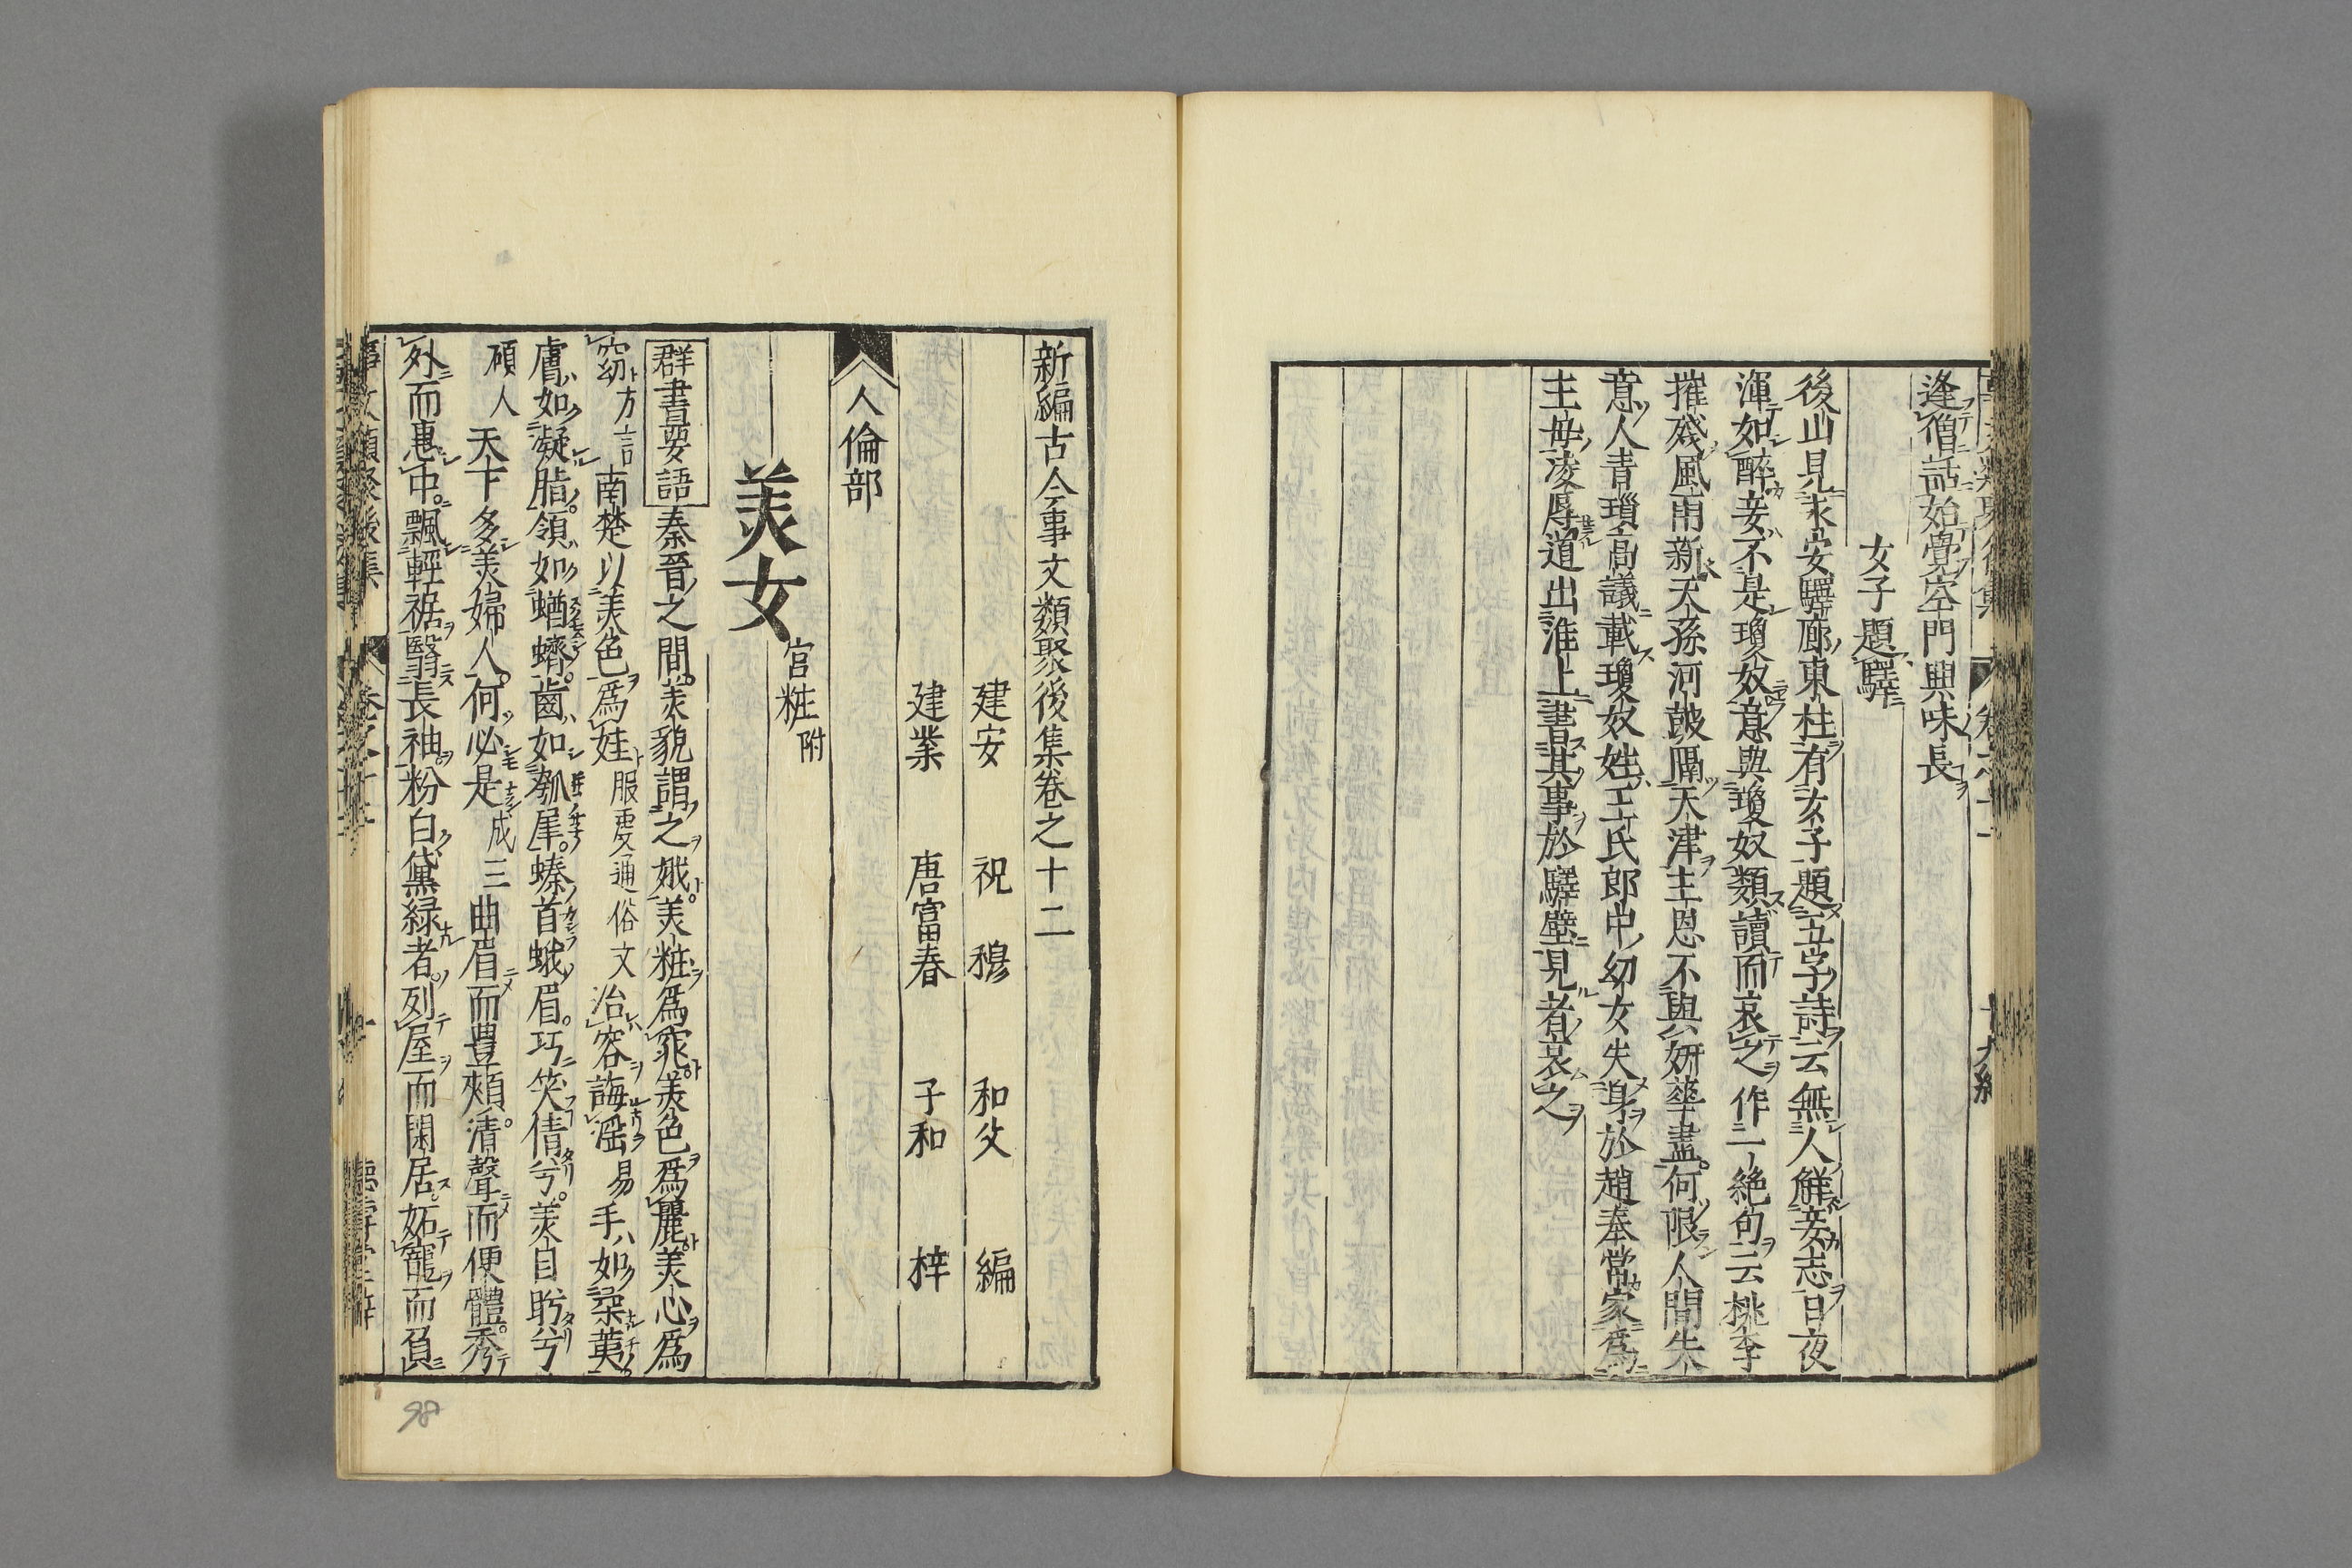 逢僧話始覺空門興味長
女子題驛
後山見永安驛廊東柱有女子題五字詩云無人解妾志日夜
渾如醉妾不是瓊奴意與瓊奴類讀而哀之作二絶句云桃李
摧殘風雨新天孫河鼓隔天津主恩不與妍華盡何限人間失
意人青瑣高議載瓊奴姓王氏郎中幼女失身於趙奉常家爲
主母凌辱道出淮上書其事於驛壁見者哀之
新編古今事文類聚後集卷之十二
建安 祝 穆 和父 編
建業 唐富春 子和 梓
人倫部
美女 宮粧附
群書要語 秦晉之間美貌謂之娥美粧爲窕美色爲麗美心爲
窈方言南楚以美色爲娃服虔通俗文冶容誨淫易手如柔荑
膚如凝脂領如蝤蠐齒如瓠犀螓首蛾眉巧笑倩兮美目盼兮
碩人天下多美婦人何必是成三曲眉而豊頰清聲而便體秀
外而惠中飄輕裾翳長袖粉白黛緑者列屋而閑居妬寵而負
98